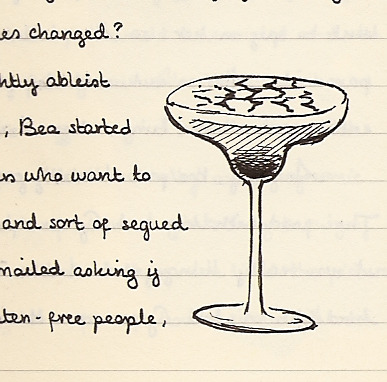 es changed?
htly ableist
, Bea started
s who want to
and sort of segued
mailed asking if
ten-free people,